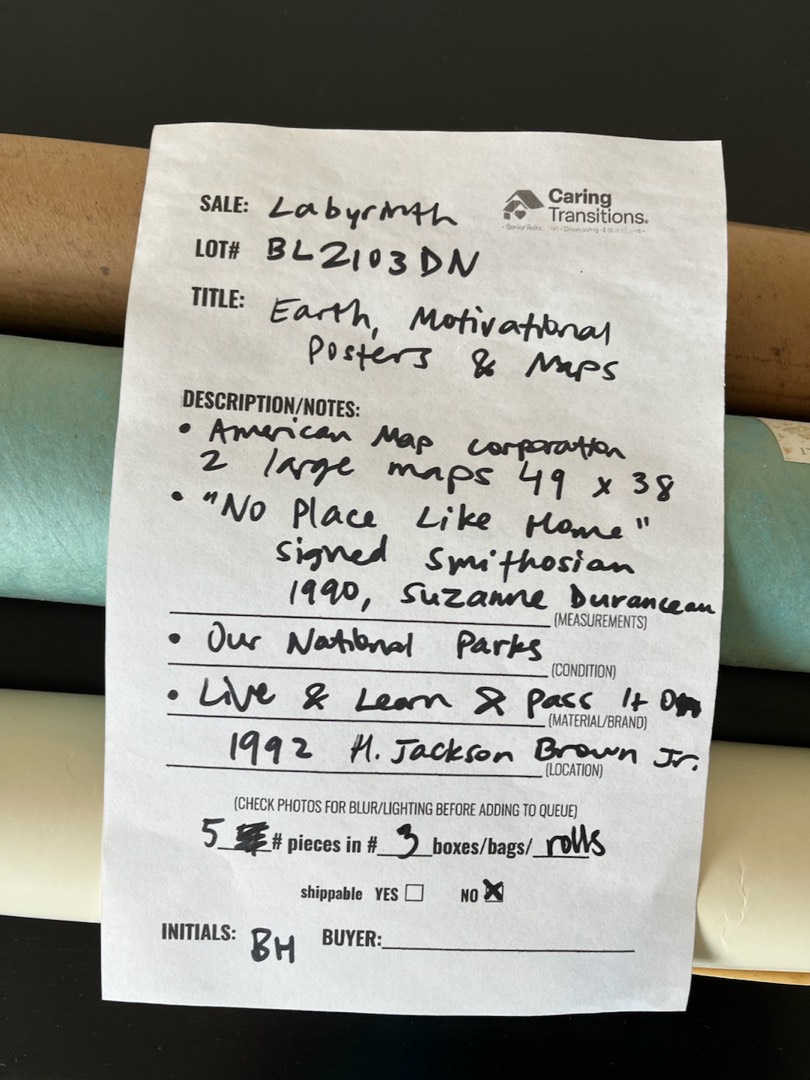 SALE: Labyrinth
Caring
Transitions®
LOT# BL2103DN
TITLE: Earth, Motivational
Posters & Maps
DESCRIPTION/NOTES:
• American Map corporation
2 large maps 49 x 38
• "No Place Like Home"
signed Smithosian
1990, Suzanne Duranceau
(MEASUREMENTS)
• Our National Parks
(CONDITION)
• Live & Learn & Pass It On
(MATERIAL/BRAND)
1992 H. Jackson Brown Jr.
(LOCATION)
(CHECK PHOTOS FOR BLUR/LIGHTING BEFORE ADDING TO QUEUE)
5 # pieces in # 3 boxes/bags/ rolls
shippable YES ☐ NO ☒
INITIALS: BH BUYER: